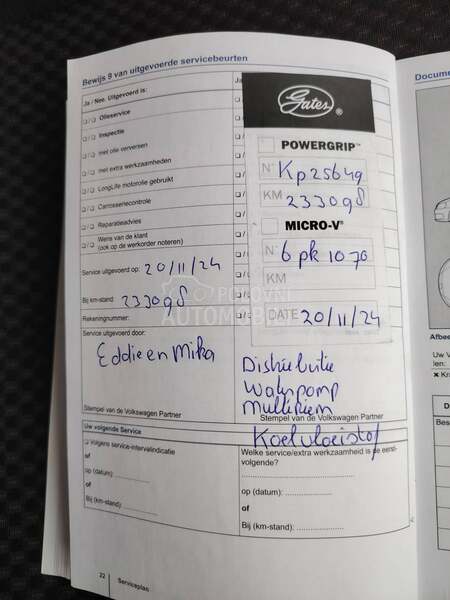 Bewijs 9 van uitgevoerde servicebeurten
Ja / Nee. Uitgevoerd is:
Olieservice
Inspectie
met olie verversen
met extra werkzaamheden
LongLife motorolie gebruikt
Carrosseriecontrole
Reparatieadvies
Wens van de klant
(ook op de werkorder noteren)
Service uitgevoerd op: 20/11/24
Bij km-stand: 233098
Rekeningnummer:
Service uitgevoerd door:
Eddie en Mika
Stempel van de Volkswagen Partner
Ja
Gates
POWERGRIP™
N° Kp25649
KM 233098
MICRO-V®
N° 6pk1070
KM
DATE 20/11/24
Distributie
Waterpomp
Multiriem
Stempel van de Volkswagen Partner
Koelvloeistof
Uw volgende Service
Volgens service-intervalindicatie
of
op (datum):
of
Bij (km-stand):
Welke service/extra werkzaamheid is de eerst-
volgende?
op (datum):
of
Bij (km-stand):
22
Serviceplan
POLOVNI
AUTOMOBILI
Docum
Afbee
Uw V
len:
D
Bes